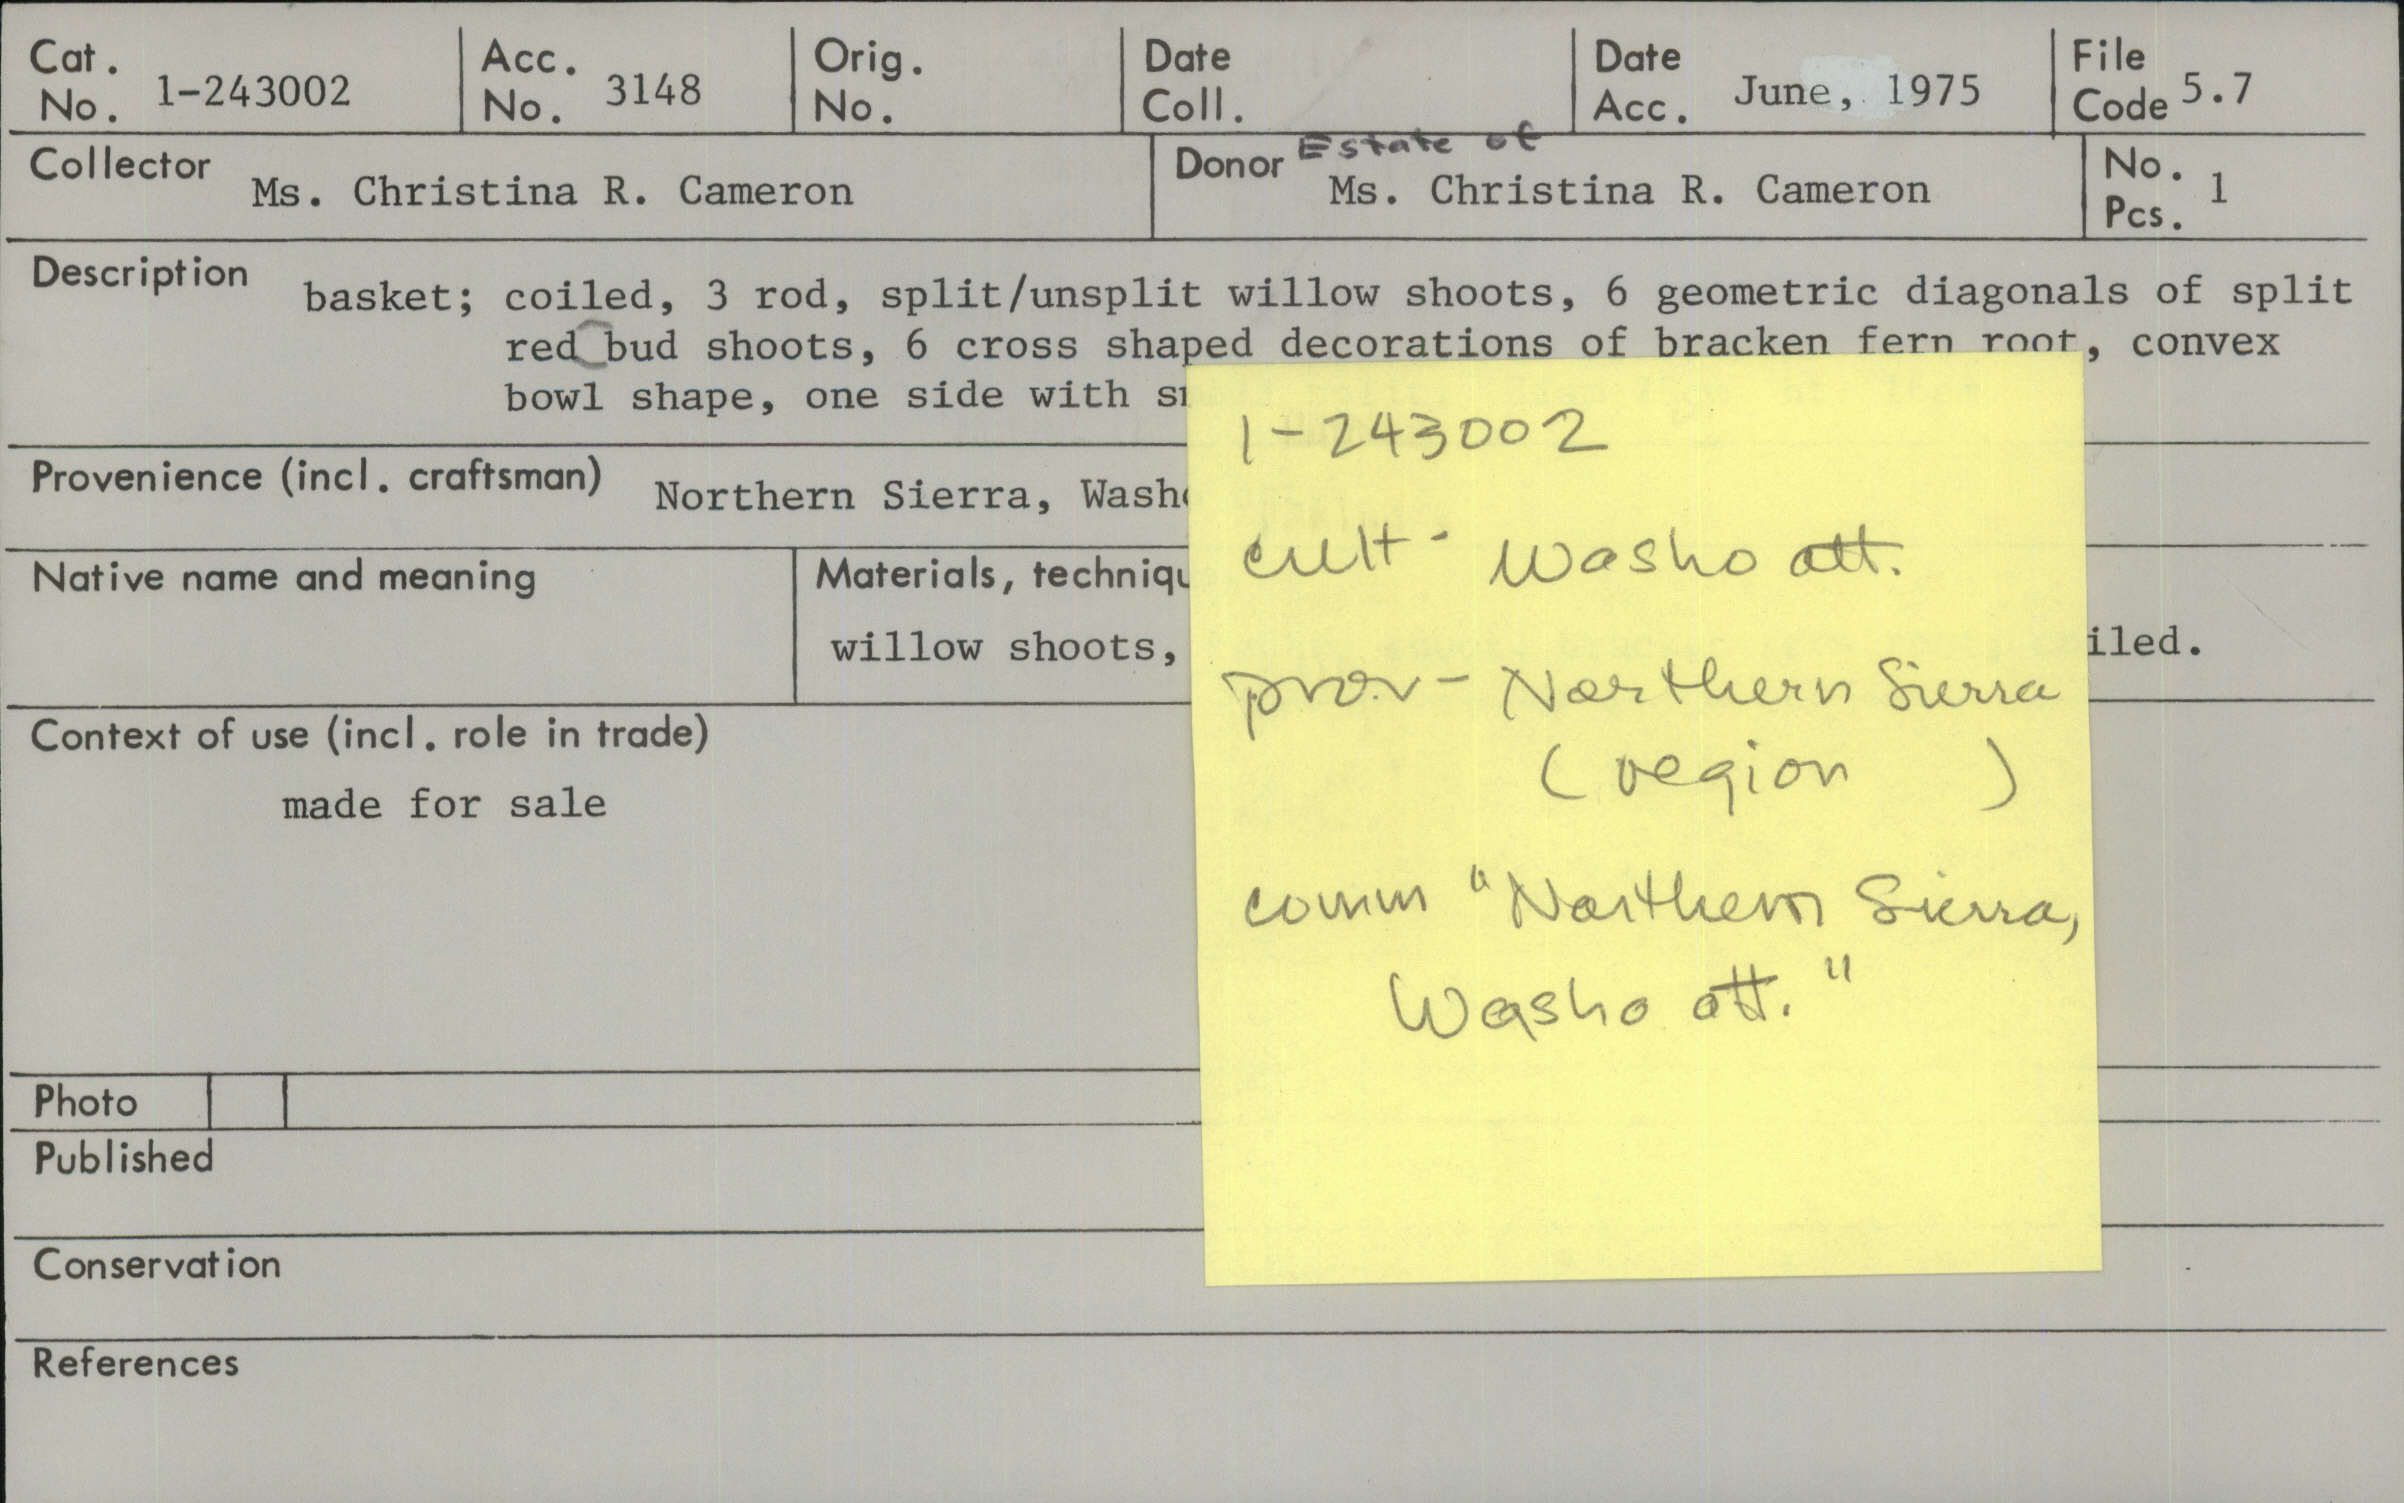 Cat. No. 1-243002
Acc. No. 3148
Orig. No.
Date Coll.
Date Acc. June, 1975
File Code 5.7
Collector Ms. Christina R. Cameron
Donor Estate of Ms. Christina R. Cameron
No. Pcs. 1
Description basket; coiled, 3 rod, split/unsplit willow shoots, 6 geometric diagonals of split
red bud shoots, 6 cross shaped decorations of bracken fern root, convex
bowl shape, one side with
Provenience (incl. craftsman) Northern Sierra,
Native name and meaning
Materials,
willow shoots,
Context of use (incl. role in trade)
made for sale
Photo
Published
Conservation
References
1-243002
cult - Washo att.
prov - Northern Sierra
(region )
comm "Northern Sierra,
Washo att."